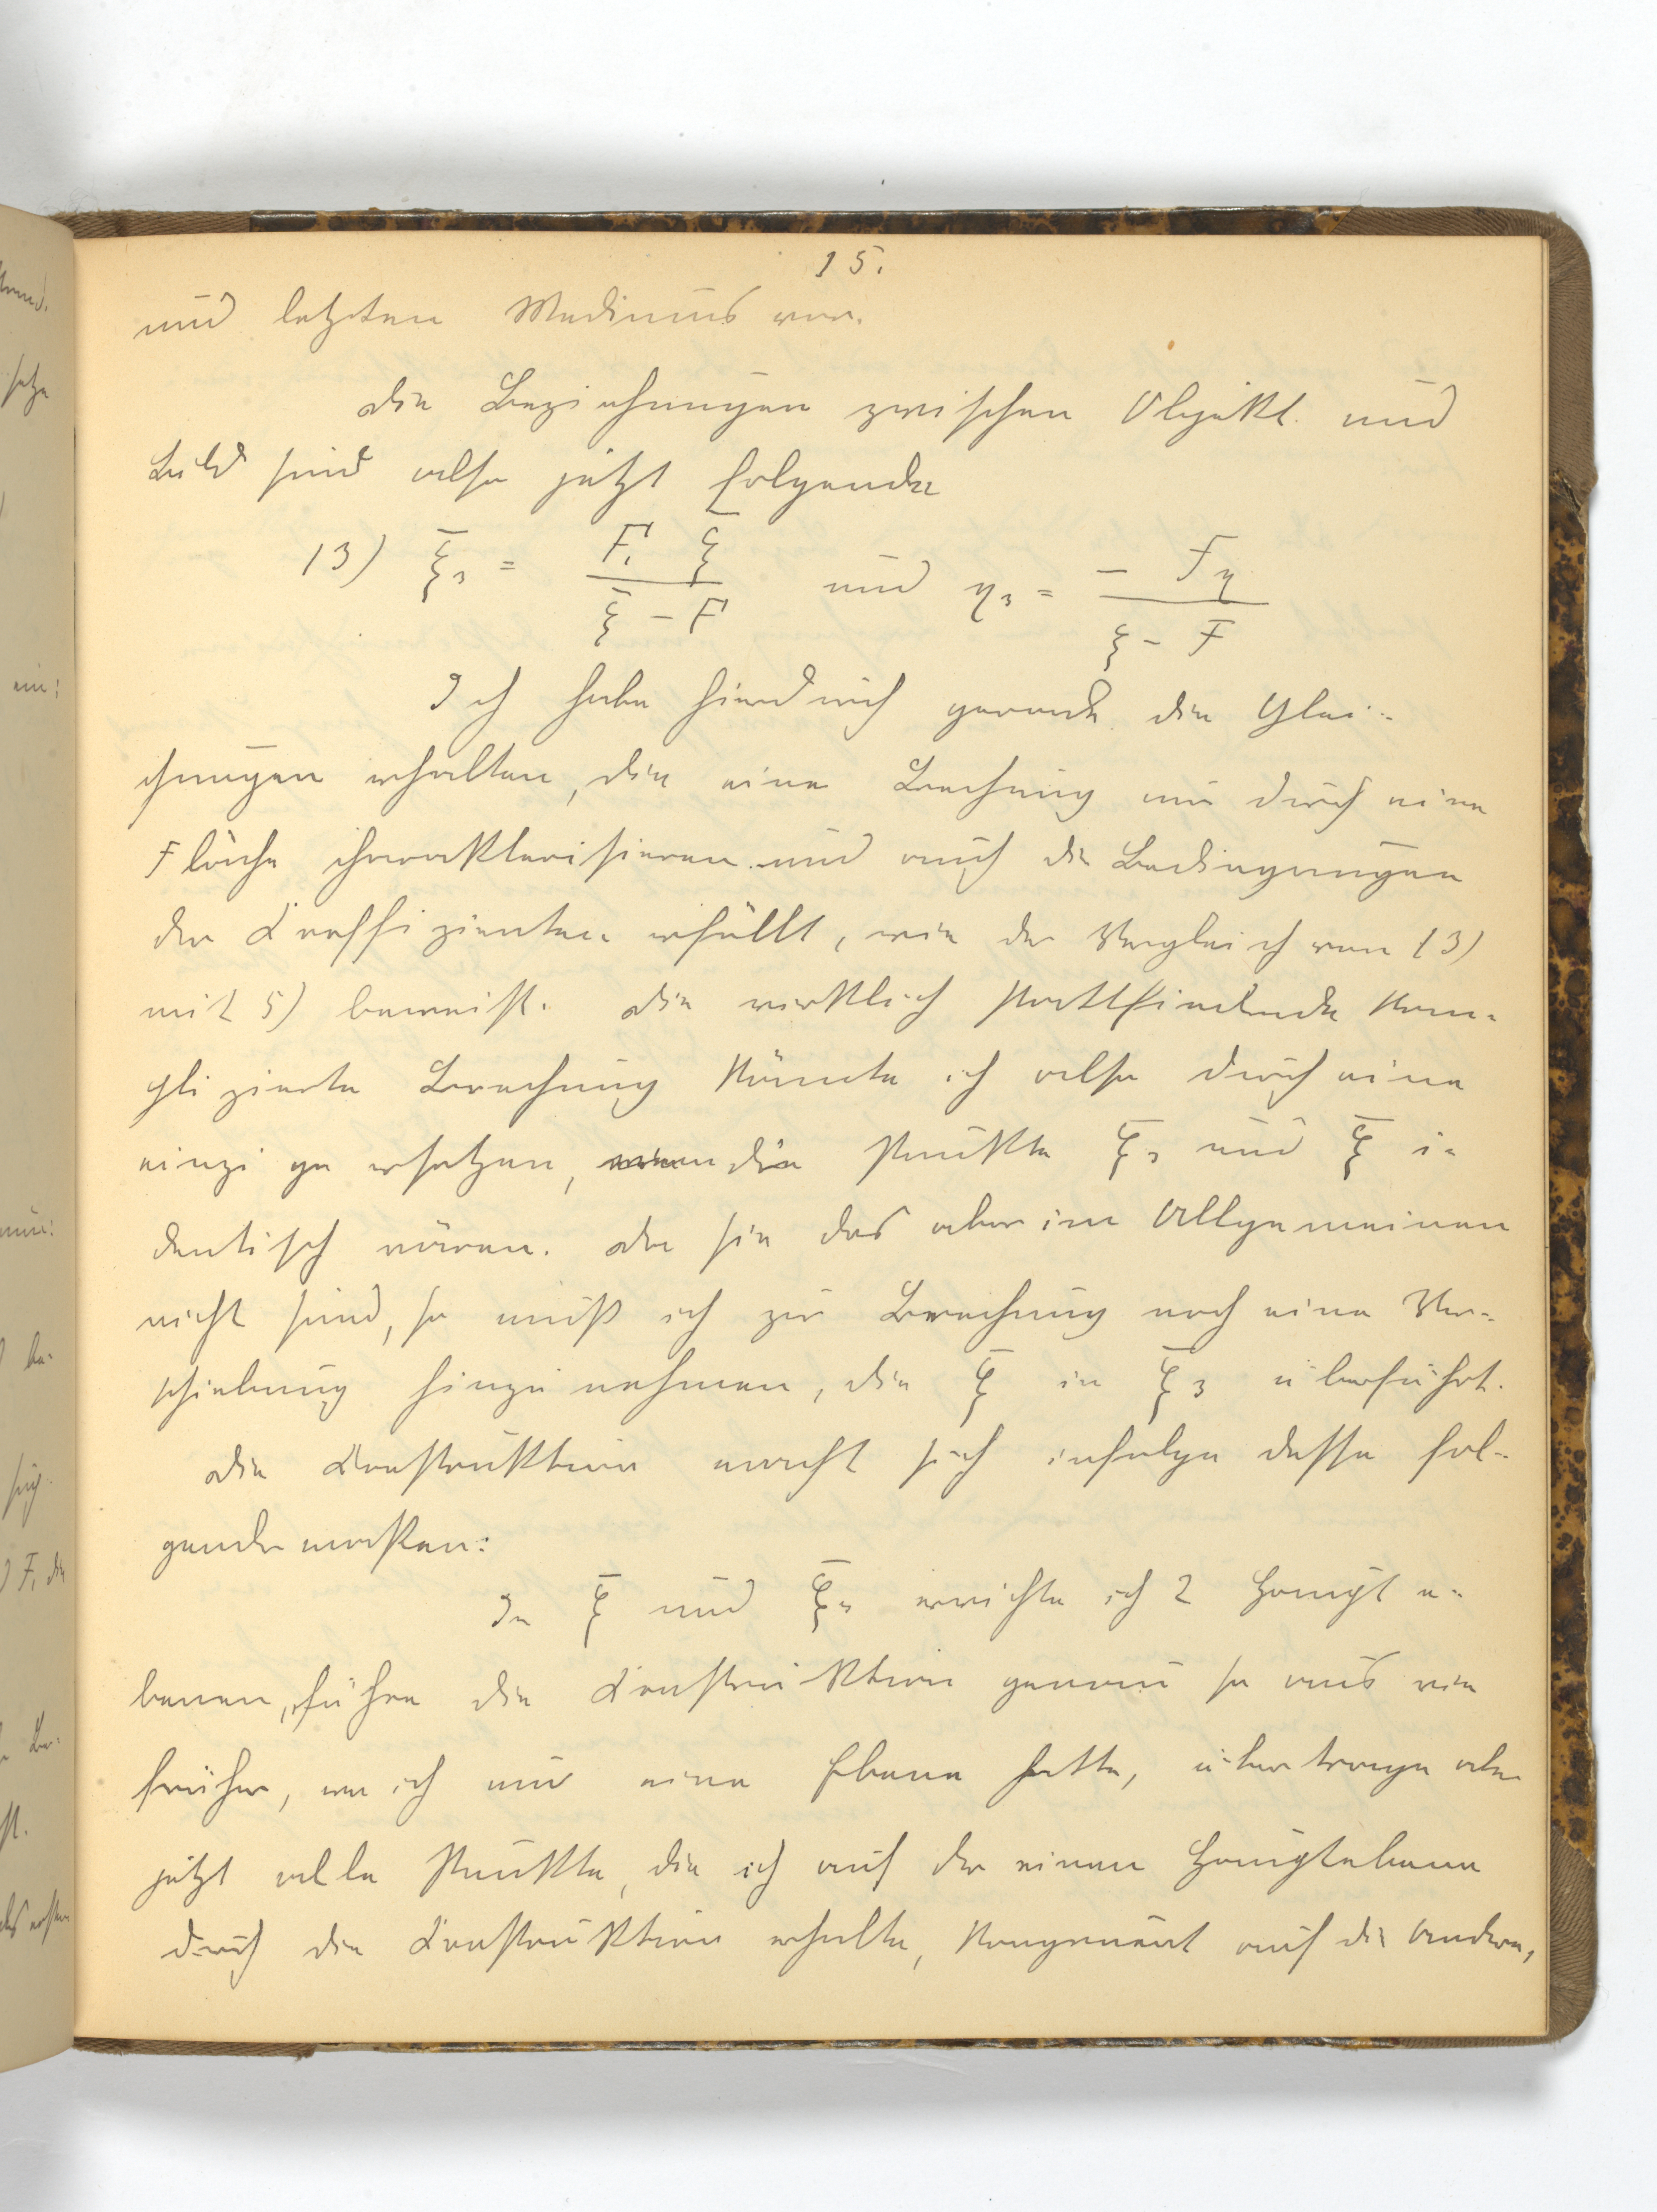 15.
und letzten Mediums vor.
Die Beziehungen zwischen Objekt und
Bild sind also jetzt folgende
13) ξ̄₃ = F₁ ξ̄ / (ξ̄ - F) und η₃ = - Fη / (ξ - F)
Ich habe hierdurch gerade die Glei-
chungen erhalten, die eine Brechung nur durch eine
Fläche charakterisieren und auch die Bedingungen
der Koeffizienten erfüllt, wie der Vergleich von 13)
mit 5) beweist. Die wirklich stattfindende kom-
plizierte Brechung könnte ich also durch eine
einzige ersetzen, wenn die Punkte ξ̄₃ und ξ̄ i-
dentisch wären. Da sie das aber im Allgemeinen
nicht sind, so muß ich zur Brechung noch eine Ver-
schiebung hinzunehmen, die ξ̄ in ξ̄₃ überführt.
Die Konstruktion macht sich infolge dessen fol-
gendermaßen:
In ξ̄ und ξ̄₃ errichte ich 2 Haupte-
benen, führe die Konstruktion genau so aus wie
früher, wo ich nur eine Ebene hatte, übertrage aber
jetzt alle Punkte, die ich auf der einen Hauptebene
durch die Konstruktion erhalte, kongruent auf die Andere,
jetzt
ein:
F₁ die